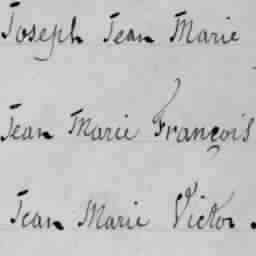 Joseph Jean Marie
Jean Marie François
Jean Marie Victor.